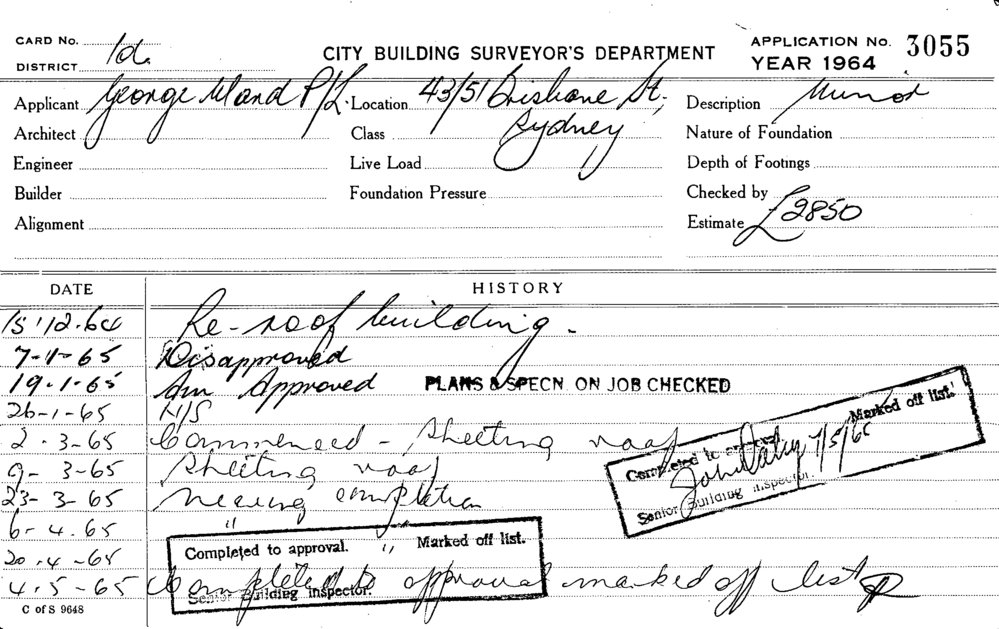 CARD No. 1d. CITY BUILDING SURVEYOR'S DEPARTMENT APPLICATION No. 3055
DISTRICT YEAR 1964
Applicant George Wand P/L. Location 43/51 Brisbane St, Description Minor
Architect Class Sydney Nature of Foundation
Engineer Live Load Depth of Footings
Builder Foundation Pressure Checked by
Alignment Estimate £2850
DATE HISTORY
15.12.64 Re-roof building.
7-1-65 Disapproved
19.1.65 Am Approved PLANS & SPECN ON JOB CHECKED
26-1-65 N/S
2.3-65 Commenced - sheeting roof
9-3-65 sheeting roof
23-3-65 nearing completion
6-4.65 "
20.4-65 "
4.5-65 Completed to approval marked off list
Completed to approval. Marked off list.
Senior Building Inspector.
Completed to approval. Marked off list.
7/5/65
Senior Building Inspector.
C of S 9648